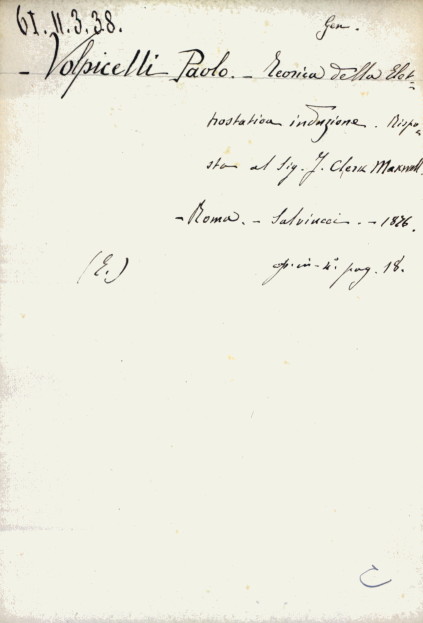 61.11.3.38.
Gen.
- Volpicelli Paolo. - Teorica della Elet-
trostatica induzione. Rispo-
sta al Sig. J. Clerk Maxwell.
- Roma. - Salviucci. - 1876.
(E.)
op. in-4º. pag. 18.
C